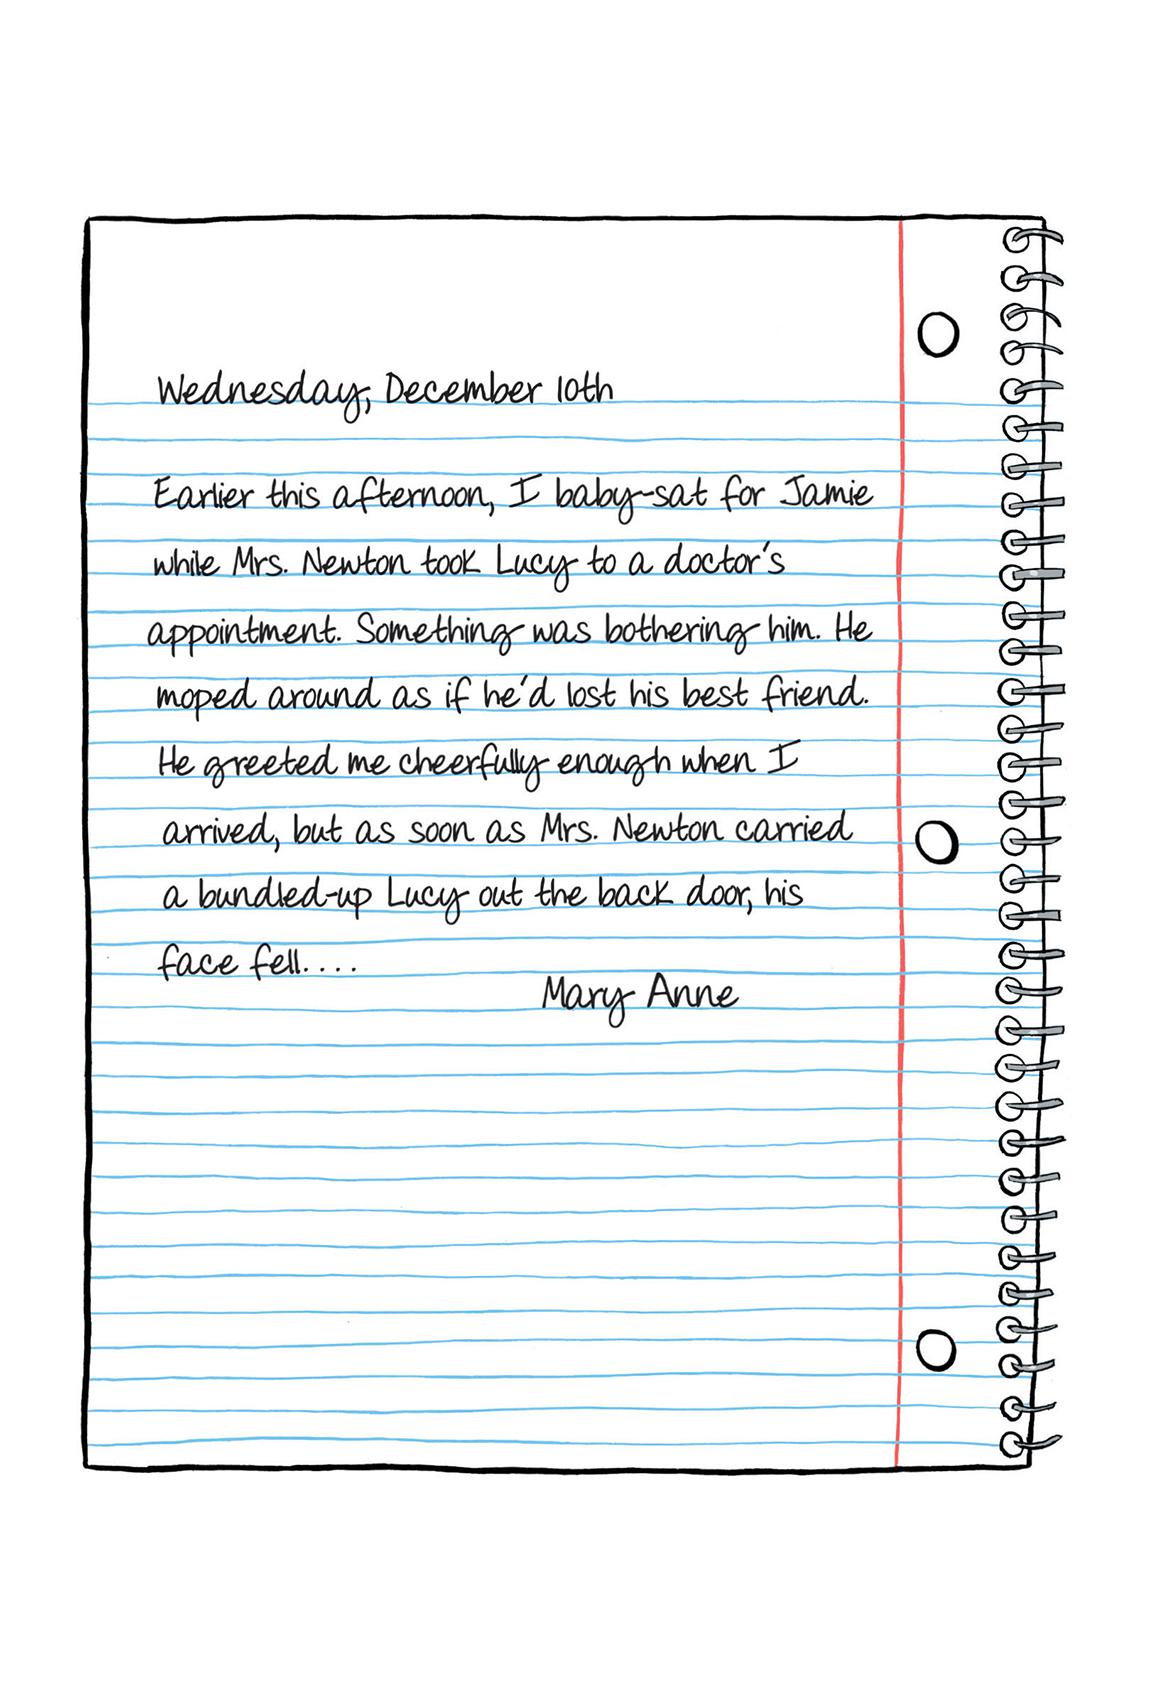 Wednesday, December 10th
Earlier this afternoon, I baby-sat for Jamie
while Mrs. Newton took Lucy to a doctor's
appointment. Something was bothering him. He
moped around as if he'd lost his best friend.
He greeted me cheerfully enough when I
arrived, but as soon as Mrs. Newton carried
a bundled-up Lucy out the back door, his
face fell....
Mary Anne